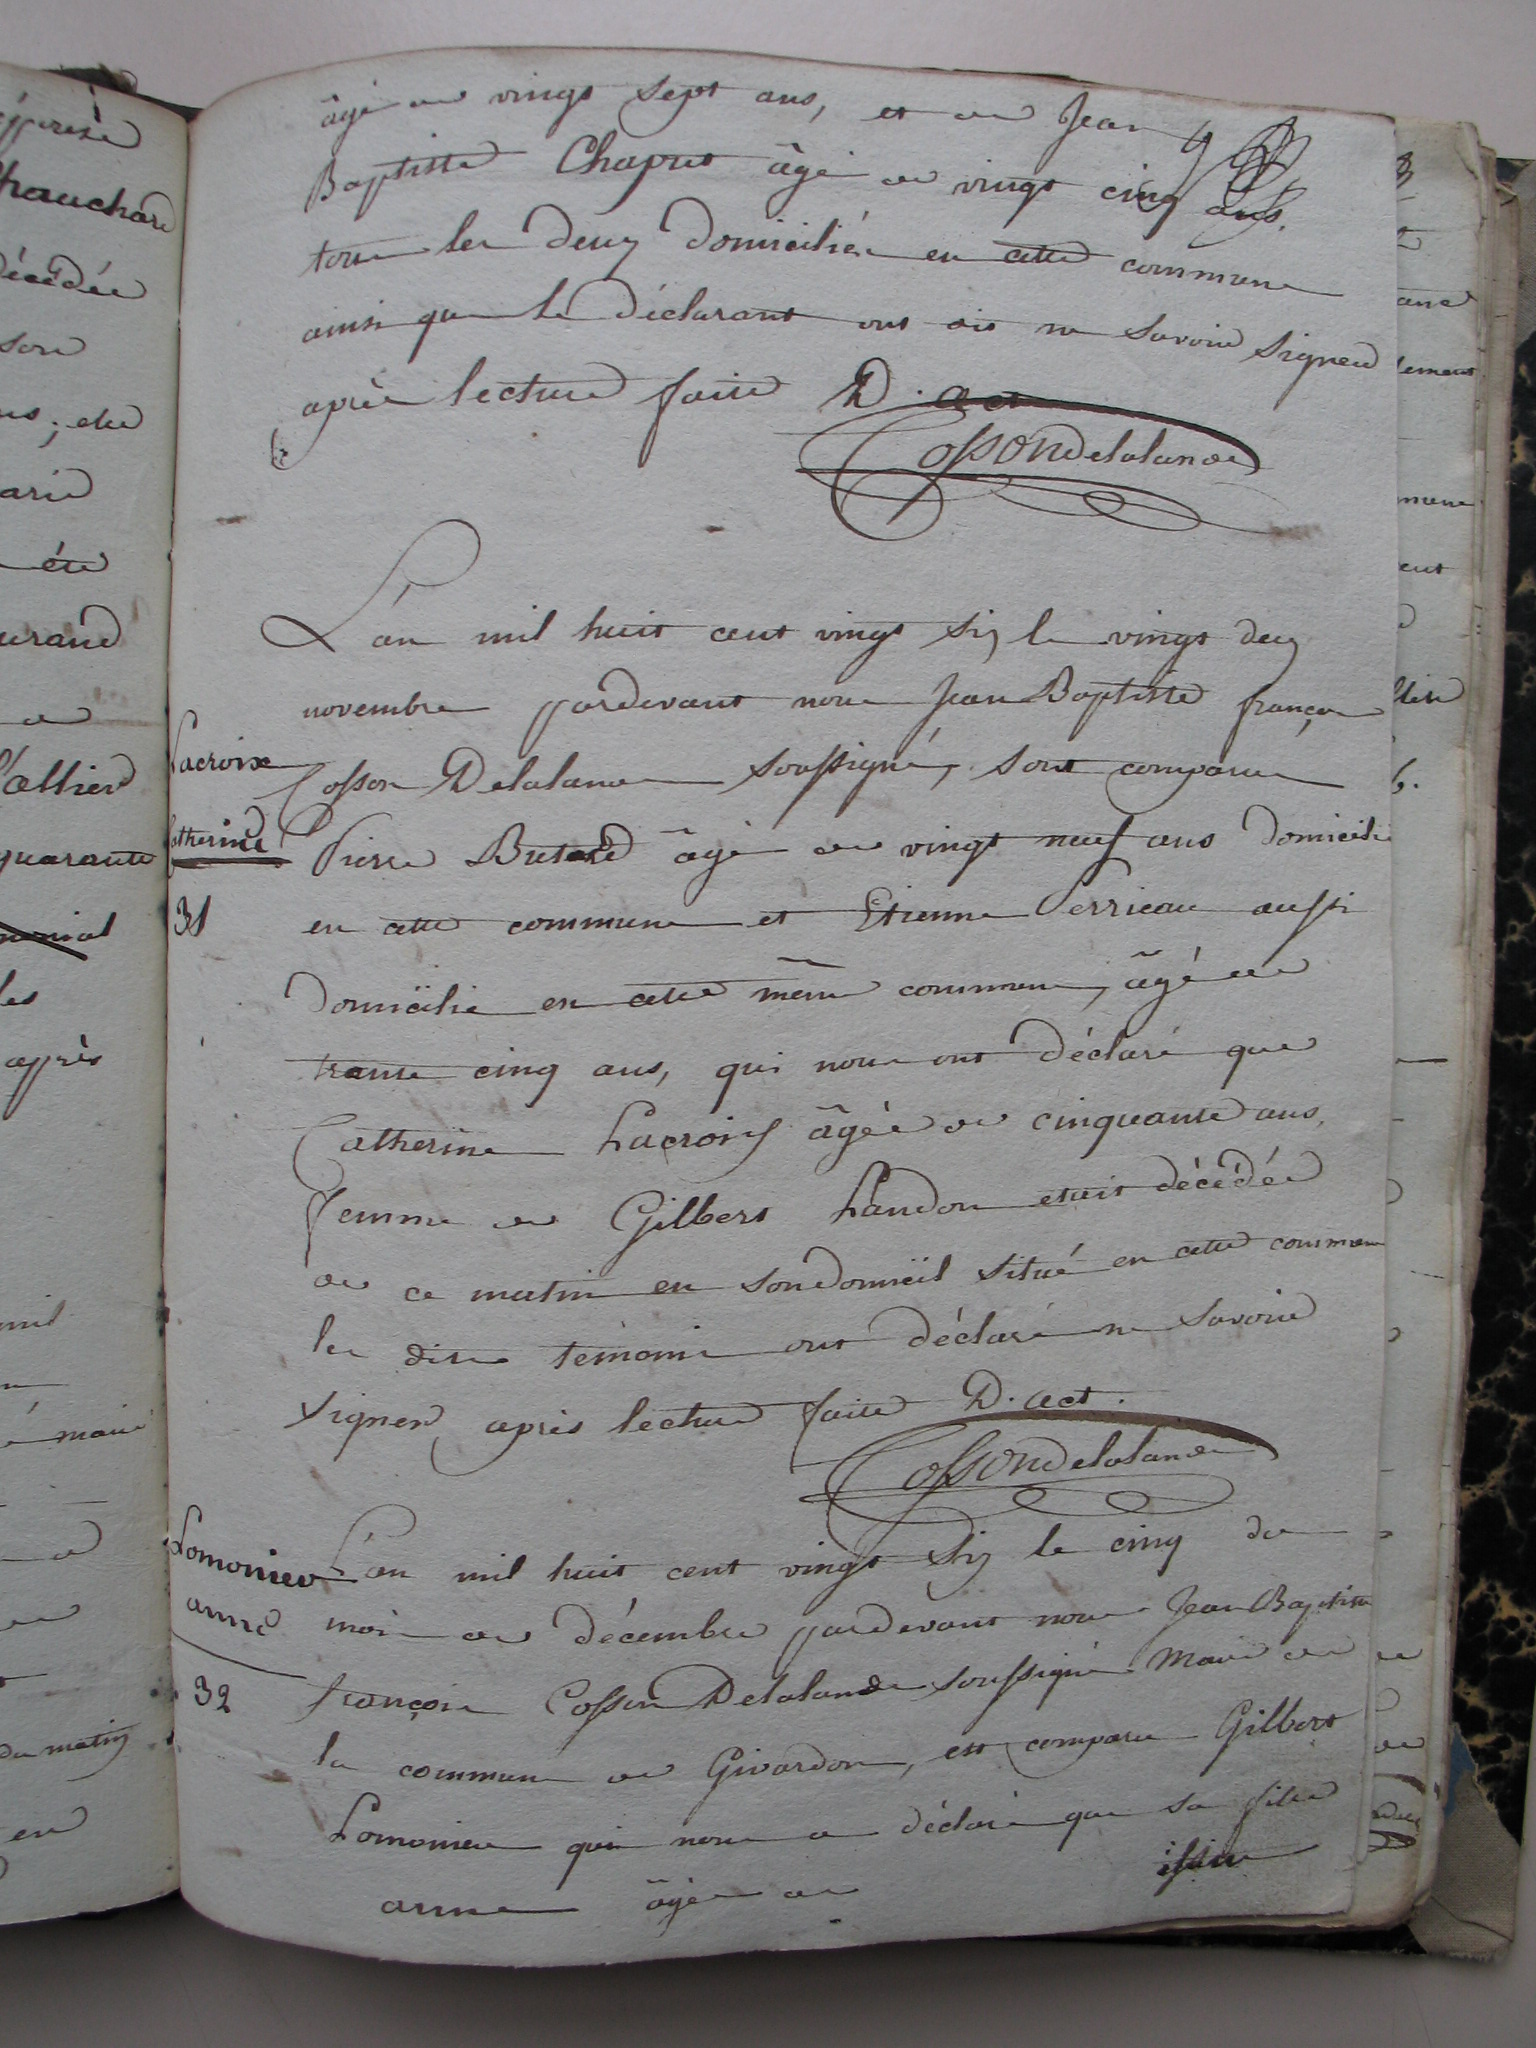 âgé de vingt sept ans, et de Jean
Baptiste Chaput âgé de vingt cinq ans.
tous les deux domiciliés en cette commune
ainsi que le déclarant ont dit ne savoir signer
après lecture faite D. act
Cosson Delalande
L'an mil huit cent vingt six le vingt deux
novembre pardevant nous Jean Baptiste françois
Lacroix
Cosson Delalande soussigné, sont comparus
Catherine
Pierre âgé de vingt neuf ans domicilié
31
en cette commune et Etienne Perricau aussi
domicilié en cette même commune, âgé de
trente cinq ans, qui nous ont déclaré que
Catherine Lacroix âgée de cinquante ans,
femme de Gilbert Landon etait décédée
de ce matin en son domicil situé en cette commune
les dits témoins ont déclaré ne savoir
signer, après lecture faite D. act.
Cosson Delalande
Lomonier
L'an mil huit cent vingt six le cinq du
anne
mois de décembre pardevant nous Jean Baptiste
32
françois Cosson Delalande soussigné maire de
la commune de Givardon, est comparu Gilbert
Lomonier qui nous a déclaré que sa fille
anne âgée de
issue
épousé
Chauchard
décédée
son
arie
été
urand
de
l'allier
quarante
les
après
mil
du matin
en